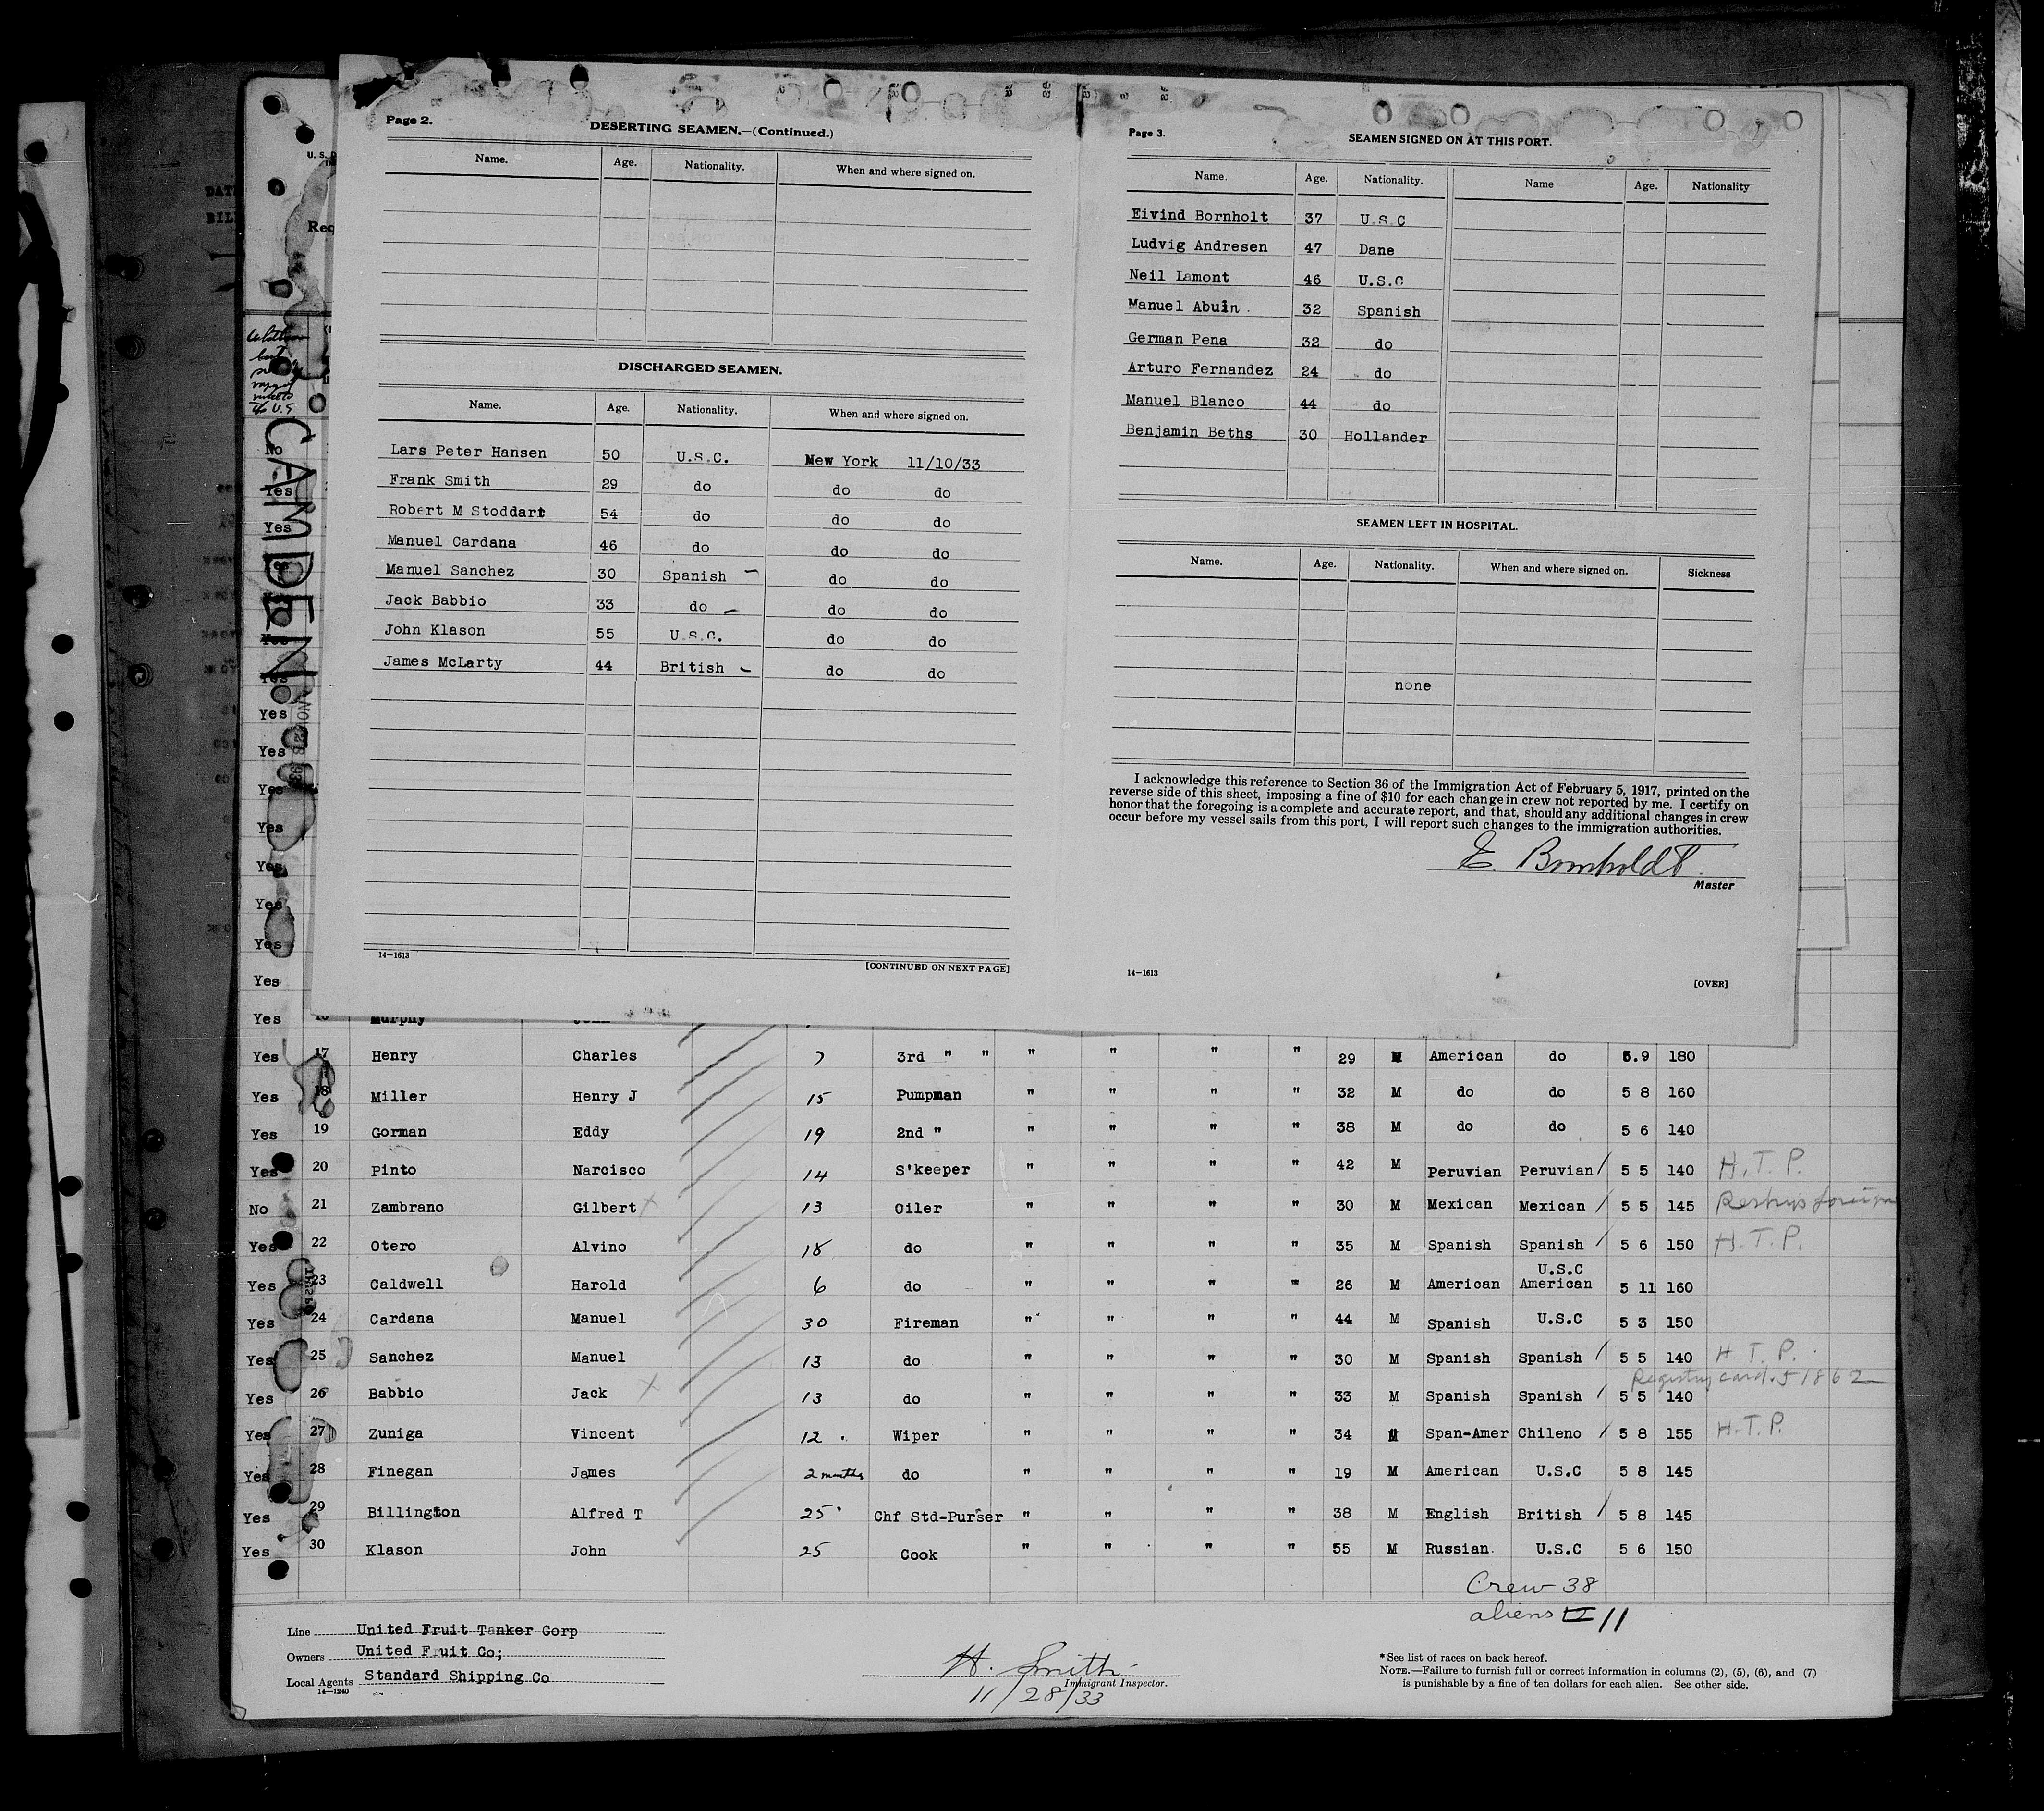 Page 2.
DESERTING SEAMEN.—(Continued.)
Name. Age. Nationality. When and where signed on.
DISCHARGED SEAMEN.
Name. Age. Nationality. When and where signed on.
Lars Peter Hansen 50 U.S.C. New York 11/10/33
Frank Smith 29 do do do
Robert M Stoddart 54 do do do
Manuel Cardana 46 do do do
Manuel Sanchez 30 Spanish do do
Jack Babbio 33 do do do
John Klason 55 U.S.C. do do
James McLarty 44 British do do
14—1613
[CONTINUED ON NEXT PAGE]
Page 3.
SEAMEN SIGNED ON AT THIS PORT.
Name. Age. Nationality. Name Age. Nationality
Eivind Bornholt 37 U.S.C
Ludvig Andresen 47 Dane
Neil Lamont 46 U.S.C
Manuel Abuin. 32 Spanish
German Pena 32 do
Arturo Fernandez 24 do
Manuel Blanco 44 do
Benjamin Beths 30 Hollander
SEAMEN LEFT IN HOSPITAL.
Name. Age. Nationality. When and where signed on. Sickness
none
I acknowledge this reference to Section 36 of the Immigration Act of February 5, 1917, printed on the
reverse side of this sheet, imposing a fine of $10 for each change in crew not reported by me. I certify on
honor that the foregoing is a complete and accurate report, and that, should any additional changes in crew
occur before my vessel sails from this port, I will report such changes to the immigration authorities.
E. Bornholdt
Master
14—1613
[OVER]
CAMDEN
No
Yes
Yes
Yes
Yes
Yes
Yes
Yes
Yes
Yes
Yes
Yes
Yes
Yes
Yes
Yes Murphy John
Yes 17 Henry Charles 7 3rd " " " " " " 29 M American do 5.9 180
Yes 18 Miller Henry J 15 Pumpman " " " " 32 M do do 5 8 160
Yes 19 Gorman Eddy 19 2nd " " " " " 38 M do do 5 6 140
Yes 20 Pinto Narcisco 14 S'keeper " " " " 42 M Peruvian Peruvian / 5 5 140 H.T.P.
No 21 Zambrano Gilbert x 13 Oiler " " " " 30 M Mexican Mexican / 5 5 145 foreign
Yes 22 Otero Alvino 18 do " " " " 35 M Spanish Spanish / 5 6 150 H.T.P.
Yes 23 Caldwell Harold 6 do " " " " 26 M American U.S.C American 5 11 160
Yes 24 Cardana Manuel 30 Fireman " " " " 44 M Spanish U.S.C 5 3 150
Yes 25 Sanchez Manuel 13 do " " " " 30 M Spanish Spanish / 5 5 140 H.T.P.
Registry card. 51862
Yes 26 Babbio Jack x 13 do " " " " 33 M Spanish Spanish / 5 5 140
Yes 27 Zuniga Vincent 12 Wiper " " " " 34 M Span-Amer Chileno / 5 8 155 H.T.P.
Yes 28 Finegan James 2 months do " " " " 19 M American U.S.C 5 8 145
Yes 29 Billington Alfred T 25 Chf Std-Purser " " " " 38 M English British / 5 8 145
Yes 30 Klason John 25 Cook " " " " 55 M Russian. U.S.C 5 6 150
Crew 38
aliens 11
Line United Fruit Tanker Corp
Owners United Fruit Co;
Local Agents Standard Shipping Co
14—1240
H. Smith
Immigrant Inspector.
11/28/33
* See list of races on back hereof.
NOTE.—Failure to furnish full or correct information in columns (2), (5), (6), and (7)
is punishable by a fine of ten dollars for each alien. See other side.